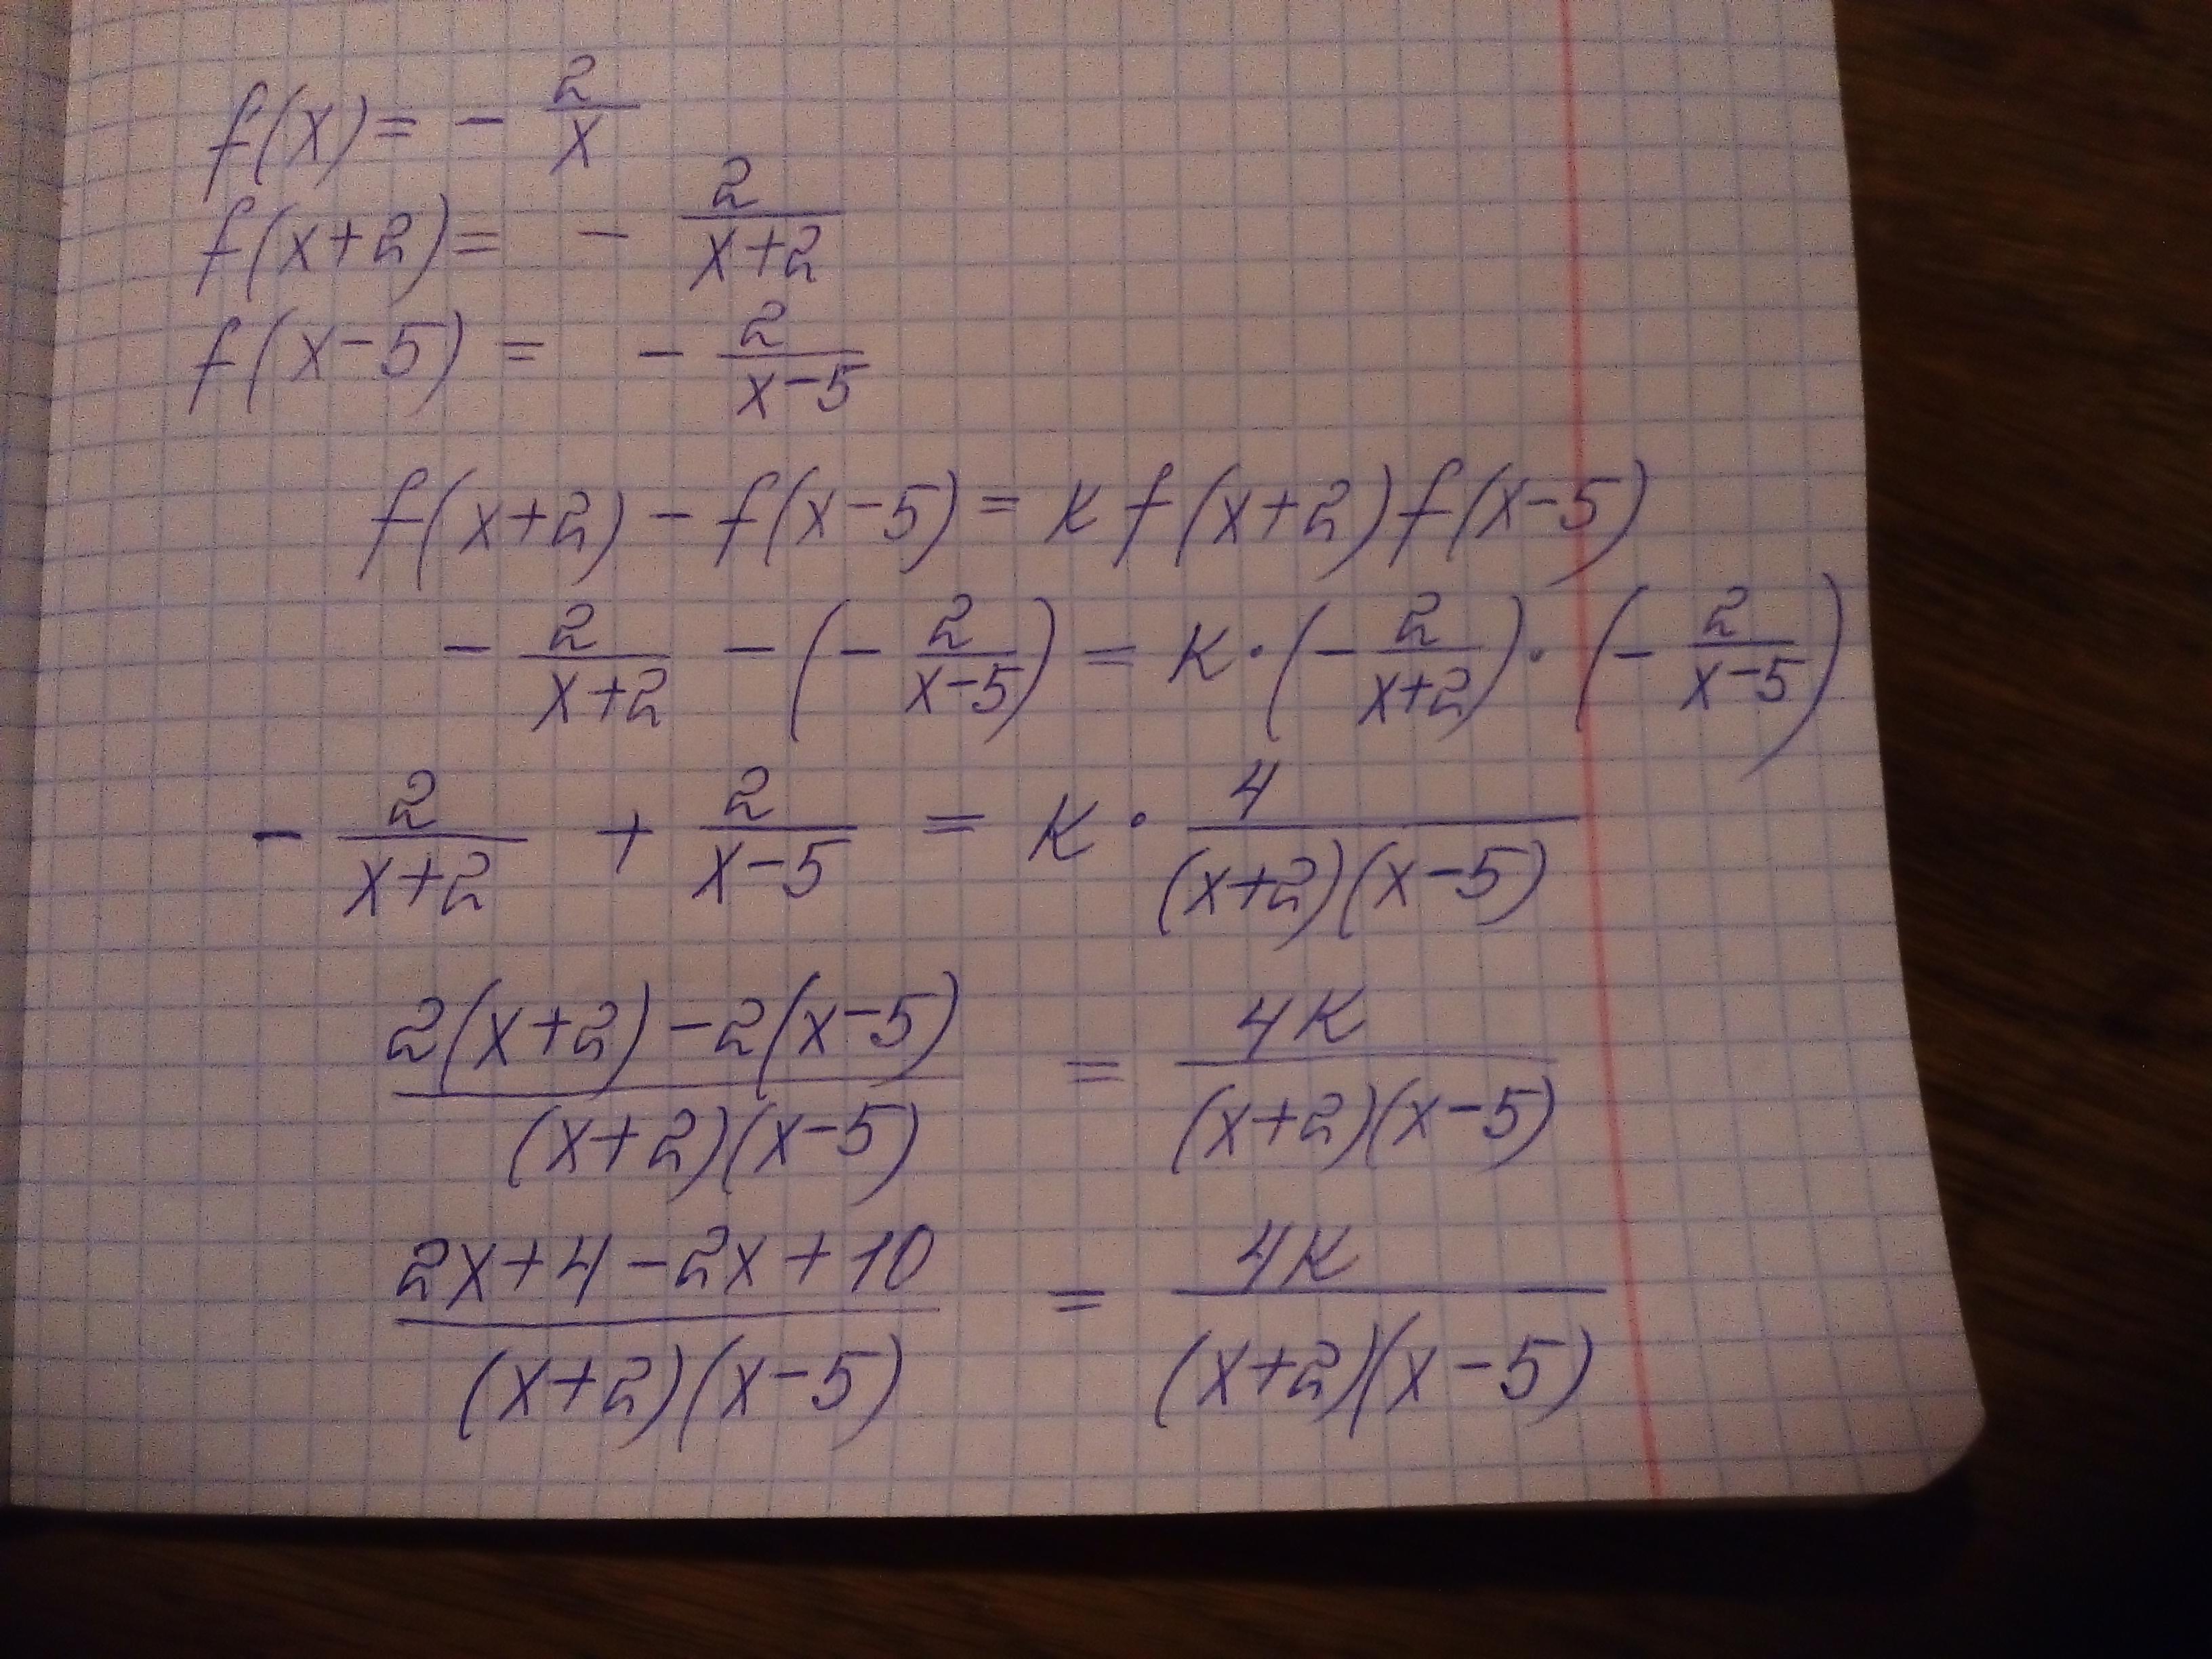 f(x) = - 2/x
f(x+2) = - 2/(x+2)
f(x-5) = - 2/(x-5)
f(x+2) - f(x-5) = k f(x+2) f(x-5)
- 2/(x+2) - (- 2/(x-5)) = k · (- 2/(x+2)) · (- 2/(x-5))
- 2/(x+2) + 2/(x-5) = k · 4/((x+2)(x-5))
(2(x+2) - 2(x-5))/((x+2)(x-5)) = 4k/((x+2)(x-5))
(2x+4-2x+10)/((x+2)(x-5)) = 4k/((x+2)(x-5))